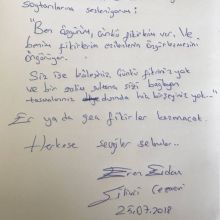 soytarılarına sesleniyorum:
"Ben özgürüm, çünkü fikirlerim var. Ve
benim fikirlerim ezilenlerin özgürleşmesini
öngörüyor.
Siz ise kölesiniz, çünkü fikriniz yok
ve bir zalim sultana sizi bağlayan
tasmalarınız dışında hiç bir şeyiniz yok..."
Er ya da geç fikirler kazanacak.
Herkese sevgiler selamlar..
Eren Erdem
Silivri Cezaevi
25.07.2018